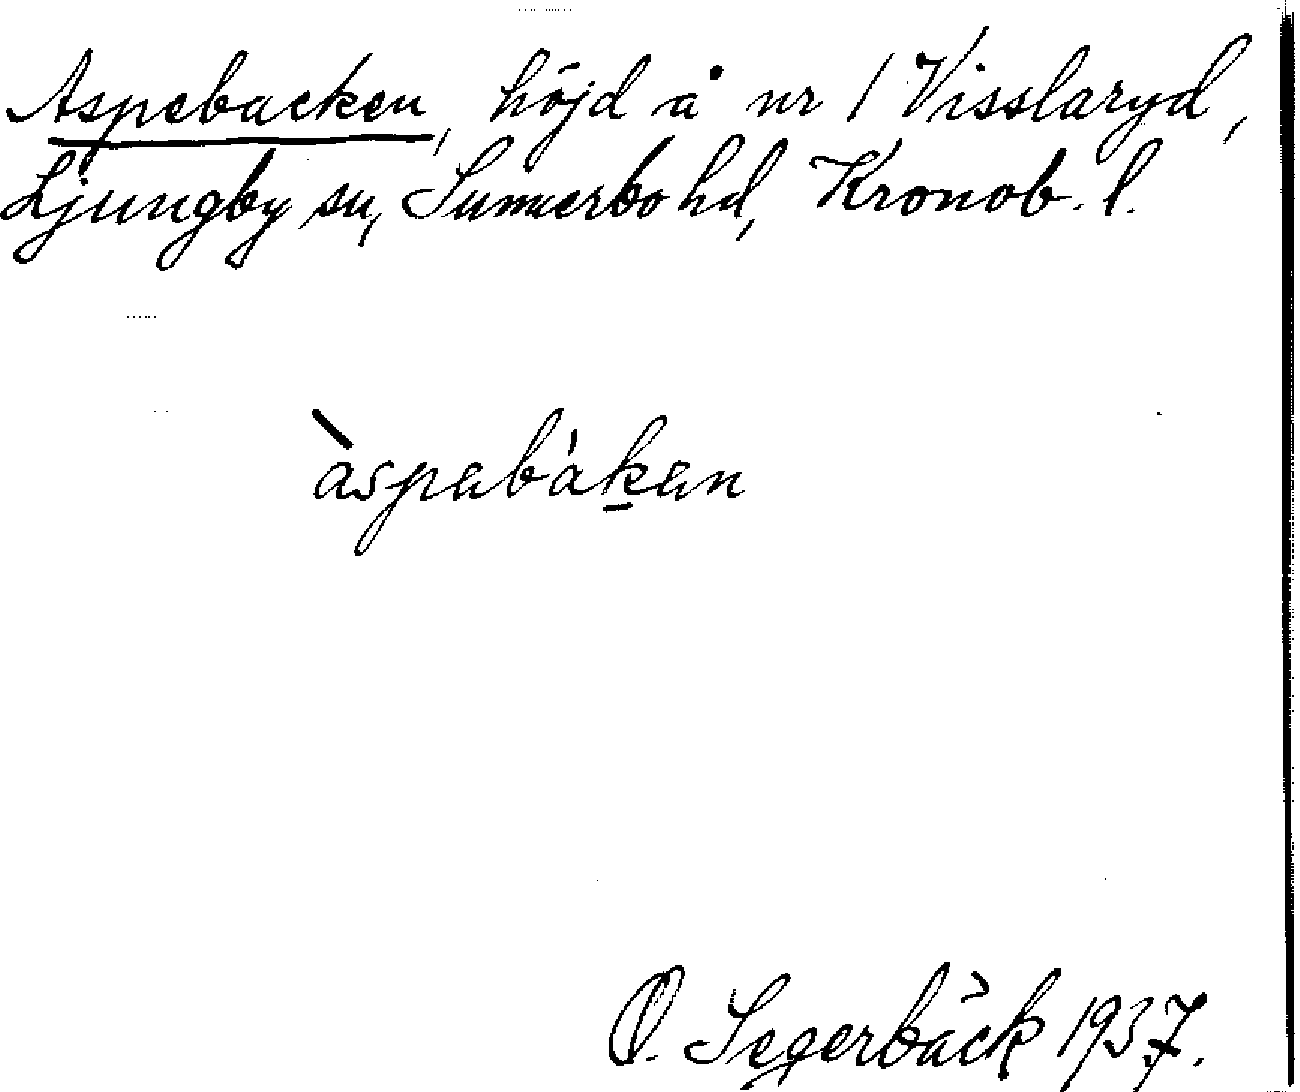 Aspebacken, höjd å nr 1 Visslaryd,
Ljungby sn, Sunnerbo hd, Kronob. l.
àspabákan
O. Segerbäck 1937.